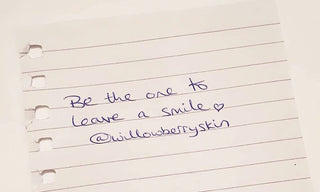 Be the one to
leave a smile ♡
@willowberryskin